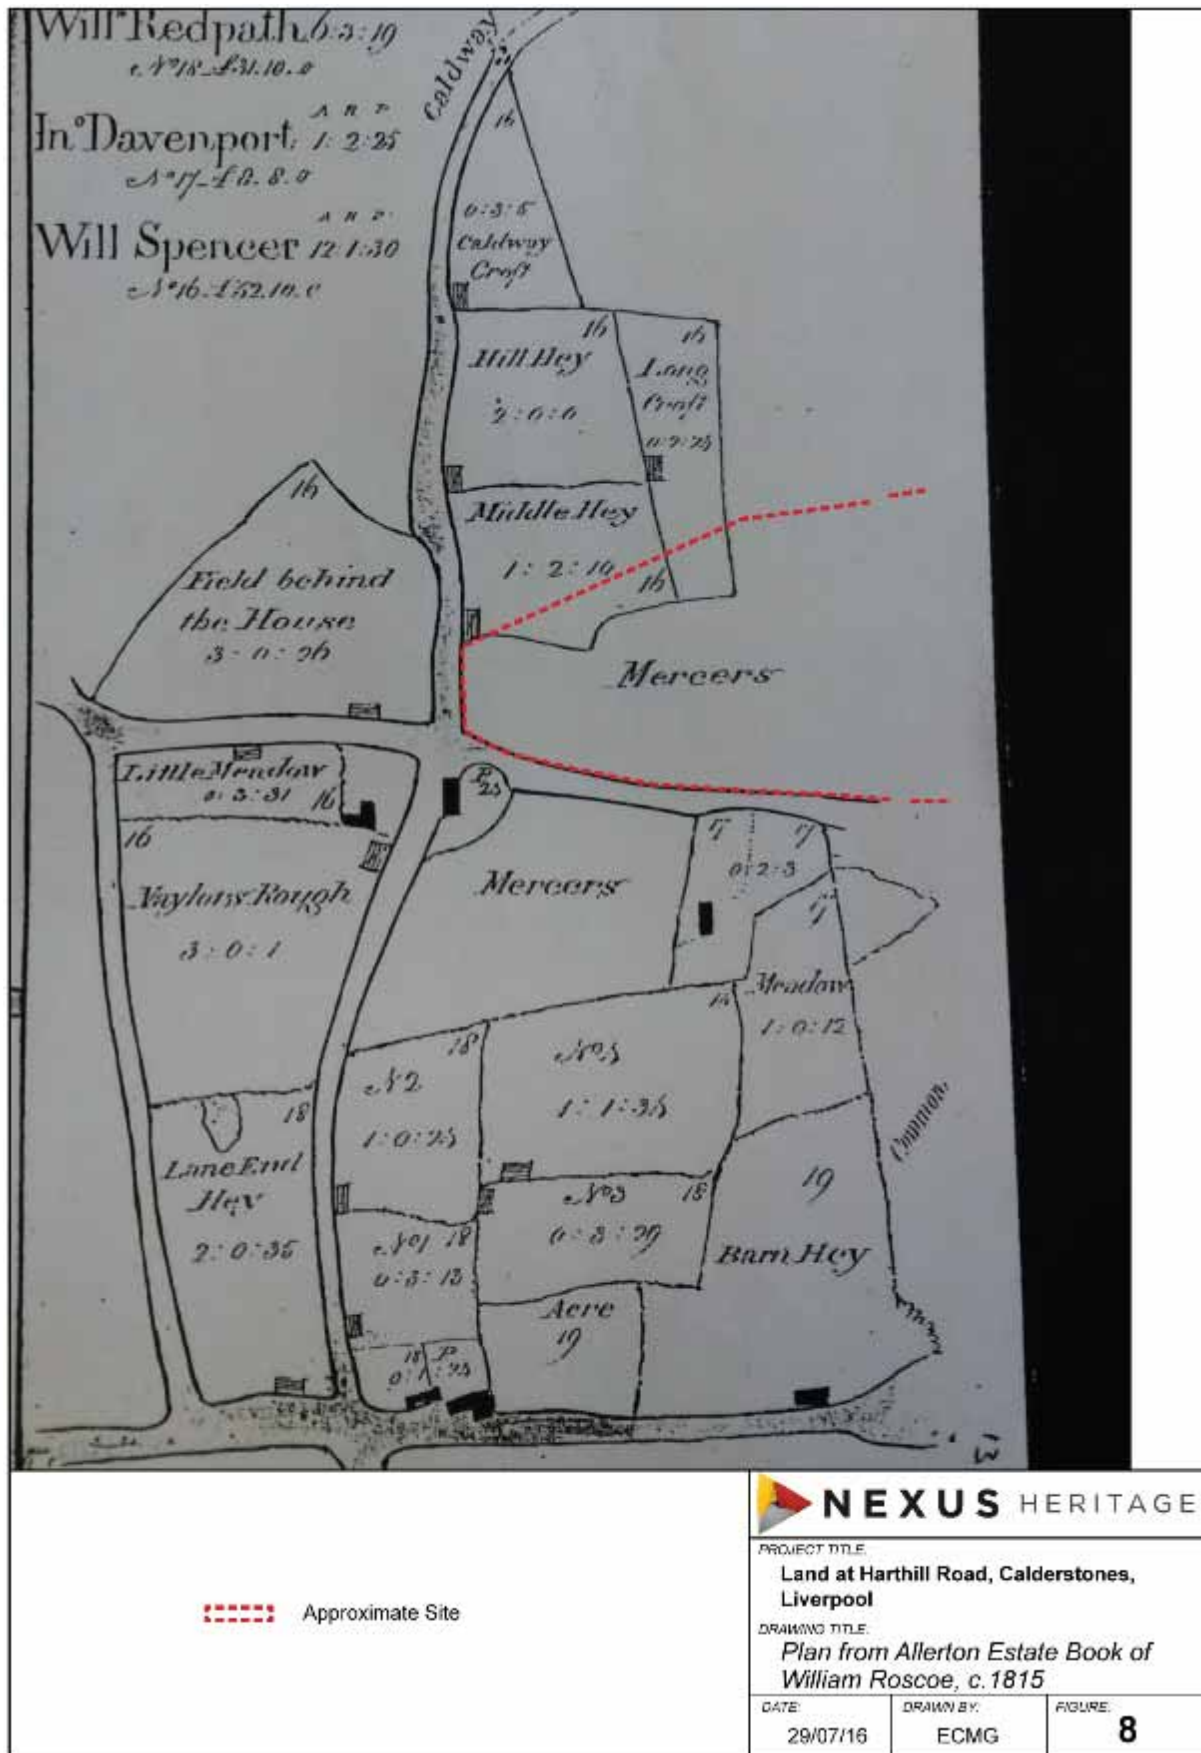 Will.m Redpath 6:3:19
No 18 £31.10.0
A R P
Jn.o Davenport 1:2:25
No 17 £8.8.0
A R P
Will Spencer 12:1:30
No 16 £52.10.0
Caldway
16
0:3:5
Caldway
Croft
16
Hill Hey
2:0:0
16
Long
Croft
0:2:25
Middle Hey
1:2:10
16
16
Field behind
the House
3:0:26
Mercers
Little Meadow
0:3:31
16
P
25
16
Naylors Rough
3:0:1
Mercers
17
17
0:2:3
17
Meadow
1:0:12
18
No 2
1:0:25
18
1:1:35
Common
18
Lane End
Hey
2:0:35
No 3
18
0:3:29
19
Barn Hey
No 1 18
0:3:13
Acre
19
18
P
0:1:25
13
NEXUS HERITAGE
PROJECT TITLE:
Land at Harthill Road, Calderstones,
Liverpool
Approximate Site
DRAWING TITLE:
Plan from Allerton Estate Book of
William Roscoe, c.1815
DATE:
29/07/16
DRAWN BY:
ECMG
FIGURE:
8